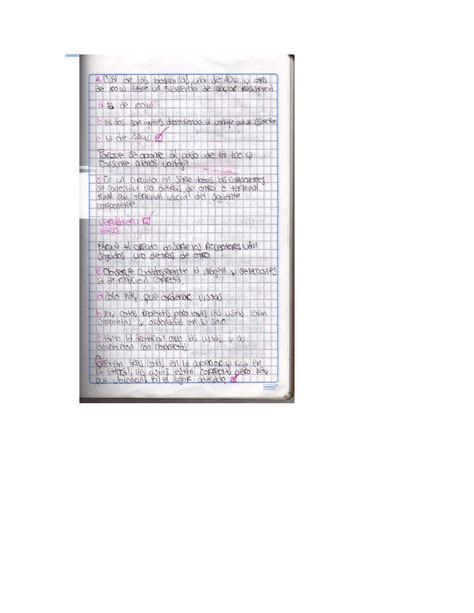 Cuál de las bombillas una de 40w y otra
de 100w tiene un filamento de mayor resistencia
a. la de 100w
b. las dos son iguales dependiendo al voltaje que se
c. la de 40w
Porque se opone al paso de la luz y
consume menos voltaje
En un circuito en serie todos los componentes
se conectan uno detras de otro o terminal
final con terminal inicial del siguiente
componente
verdadero
falso
Porque el circuito en serie los Receptores van
seguidos uno detras de otro.
Observe cuidadosamente la imagen y seleccione
la correcta
a. solo hay que ordenar vistas
b. hay cotas repetidas pero todas las vistas están
completas y ordenadas en su sitio
c. tanto la como las vistas y su
son correctas
cotas en la superior y una en
la lateral, las vistas están correctas pero hay
que ubicarlas en el lugar adecuado